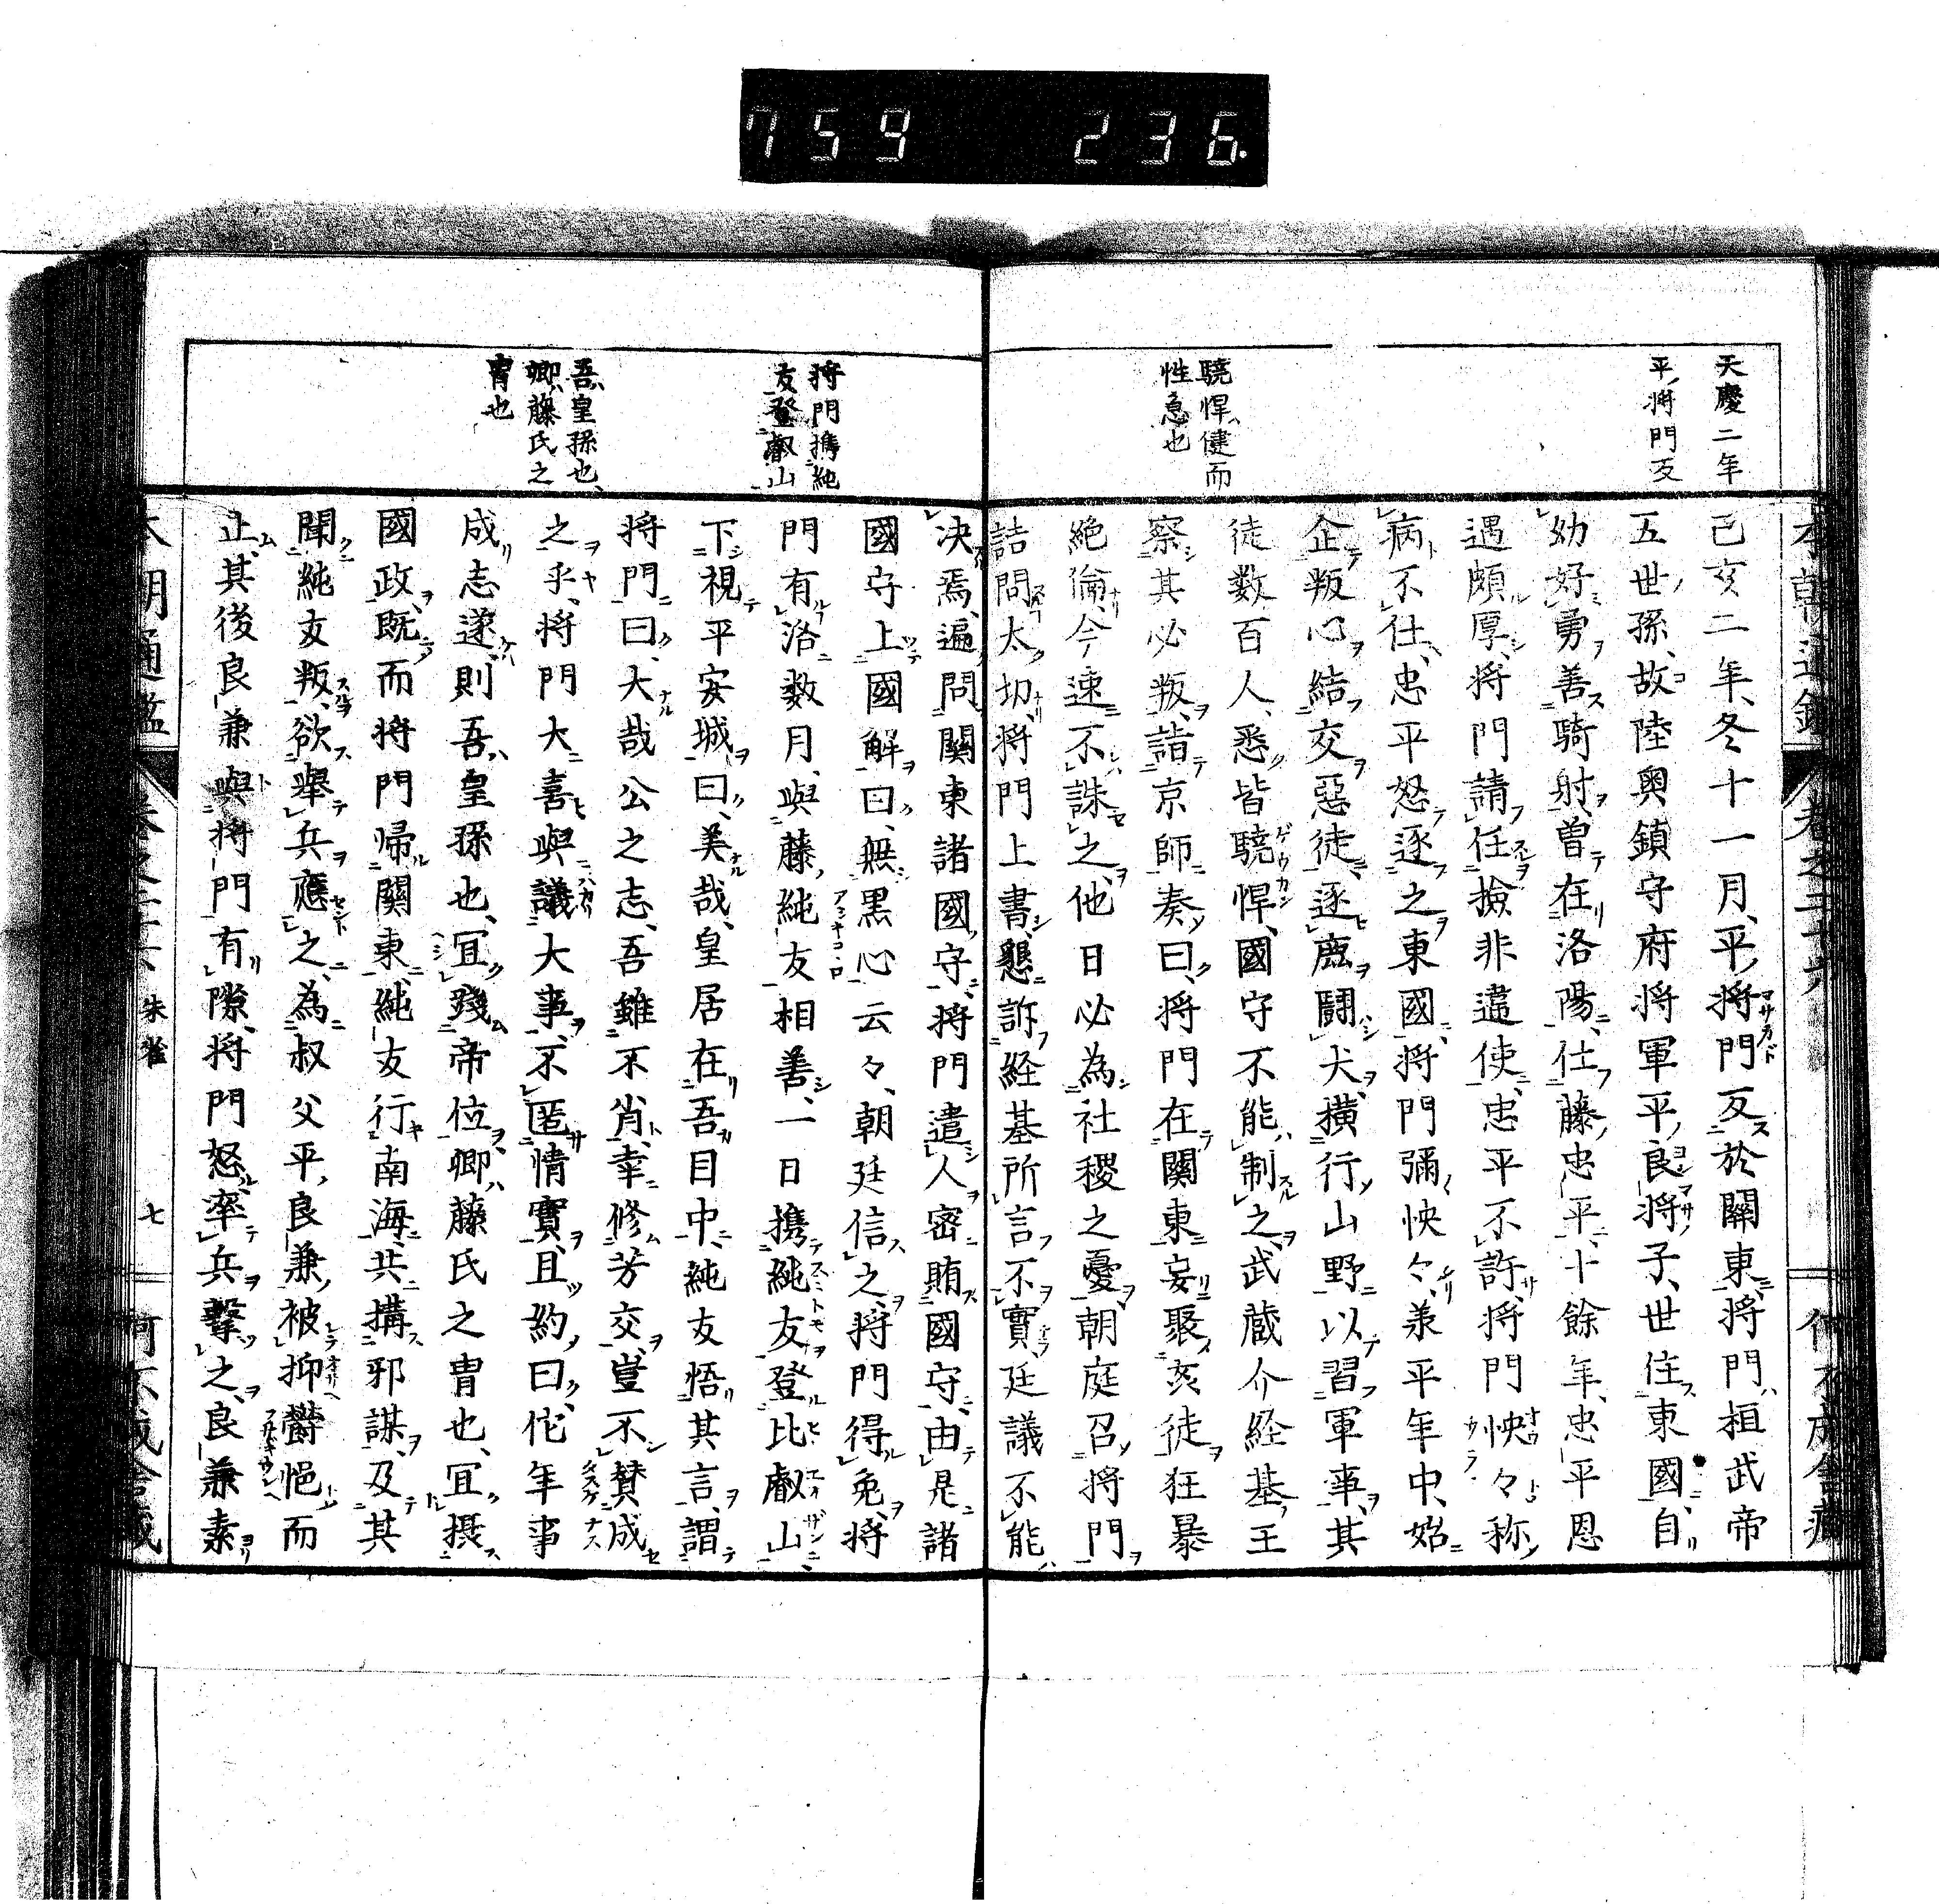 759 236.
天慶二年
平將門反
驍悍健而
性急也
己亥二年、冬十一月、平將門反於關東、將門桓武帝
五世孫、故陸奥鎮守府將軍平良將子、世住東國、自
幼好勇善騎射、曽在洛陽、仕藤忠平、十餘年、忠平恩
遇頗厚、将門請任撿非違使、忠平不許、将門怏々称
病不仕、忠平怒逐之東國、将門彌怏々、承平年中、始
企叛心結交惡徒、逐鹿鬪犬、横行山野以習軍事、其
徒数百人、悉皆驍悍、國守不能制之、武蔵介経基王
察其必叛、詣京師奏曰、将門在關東妄聚亥徒狂暴
絶倫、今速不誅之、他日必為社稷之憂、朝庭召将門
詰問太切、将門上書、懇訴経基所言不實、廷議不能
将門携純
友登叡山
吾皇孫也、
卿藤氏之
冑也
决焉、遍問關東諸國守、将門遣人密賄國守、由是諸
國守上國解曰、無黒心云々、朝廷信之、将門得免、将
門有洛数月、與藤純友相善、一日携純友登比叡山、
下視平安城曰、美哉、皇居在吾目中、純友悟其言、謂
将門曰、大哉公之志、吾雖不肖、幸修芳交、豈不賛成
之乎、将門大喜與議大事、不匿情實、且約曰、佗年事
成志遂則吾皇孫也、冝踐帝位、卿藤氏之冑也、冝摂
國政、既而将門帰關東、純友行南海、共搆邪謀、及其
聞純友叛、欲舉兵應之、為叔父平良兼被抑欝悒而
止、其後良兼與将門有隙、将門怒、率兵撃之、良兼素
本朝通鑑 卷之二十六 朱雀 七